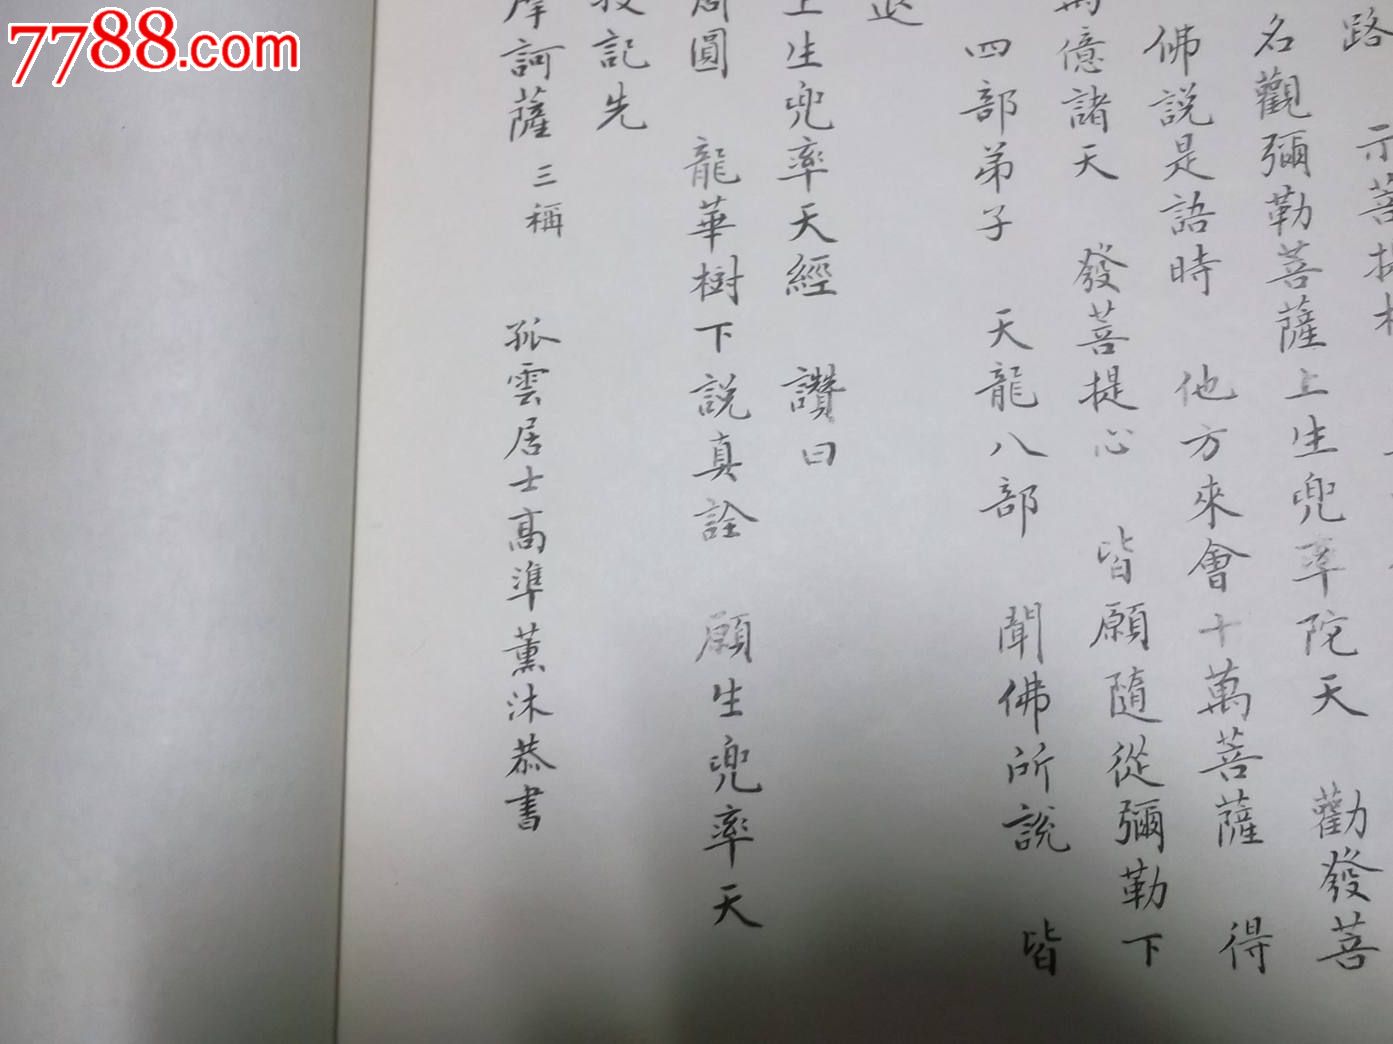 7788.com
路 示菩提相
名觀彌勒菩薩上生兜率陀天 勸發菩
佛説是語時 他方來會十萬菩薩 得
萬億諸天 發菩提心 皆願隨從彌勒下
四部弟子 天龍八部 聞佛所説 皆
退
上生兜率天經 讚曰
周圓 龍華樹下説真詮 願生兜率天
授記先
摩訶薩 三稱 孤雲居士高準薰沐恭書